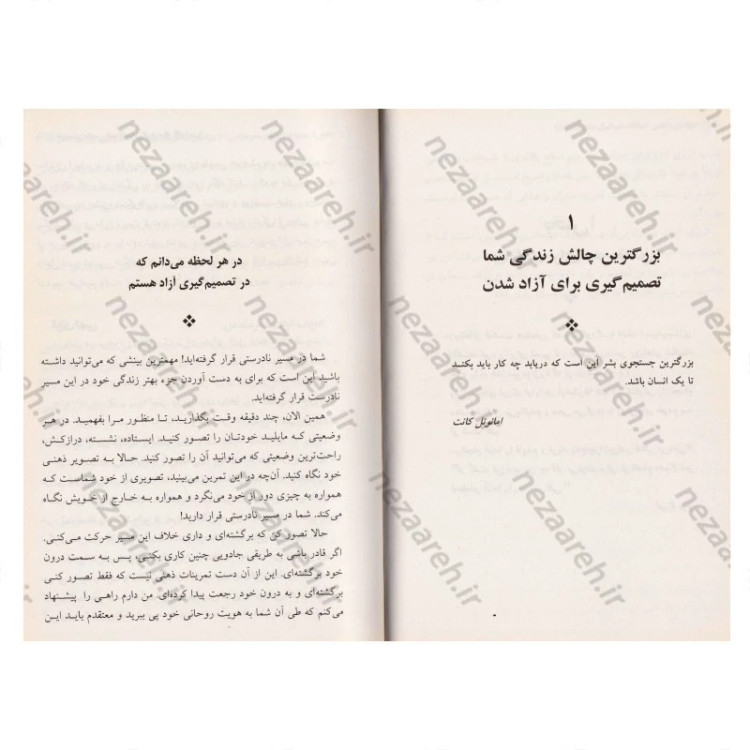 ۱
بزرگترین چالش زندگی شما
تصمیم‌گیری برای آزاد شدن
بزرگترین جستجوی بشر این است که دریابد چه کار باید بکند
تا یک انسان باشد.
امانوئل کانت
در هر لحظه می‌دانم که
در تصمیم‌گیری آزاد هستم
شما در مسیر نادرستی قرار گرفته‌اید! مهمترین بینشی که می‌توانید داشته
باشید این است که برای به دست آوردن جزء بهتر زندگی خود در این مسیر
نادرست قرار گرفته‌اید.
همین الان، چند دقیقه وقت بگذارید، تا منظور مرا بفهمید. در هر
وضعیتی که مایلید خودتان را تصور کنید. ایستاده، نشسته، درازکش،
راحت‌ترین وضعیتی که می‌توانید آن را تصور کنید. حالا به تصویر ذهنی
خود نگاه کنید. آن‌چه در این تمرین می‌بینید، تصویری از خود شماست که
همواره به چیزی دور از خود می‌نگرد و همواره به خارج از خویش نگاه
می‌کند. شما در مسیر نادرستی قرار دارید!
حالا تصور کن که برگشته‌ای و داری خلاف این مسیر حرکت می‌کنی.
اگر قادر باشی به طریقی جادویی چنین کاری بکنی، پس به سمت درون
خود برگشته‌ای. این از آن دست تمرینات ذهنی نیست که فقط تصور کنی
برگشته‌ای و به درون خود رجعت پیدا کرده‌ای. من دارم راهی را پیشنهاد
می‌کنم که طی آن شما به هویت روحانی خود پی ببرید و معتقدم باید این
nezaareh.ir
nezaareh.ir
nezaareh.ir
nezaareh.ir
nezaareh.ir
nezaareh.ir
nezaareh.ir
nezaareh.ir
nezaareh.ir